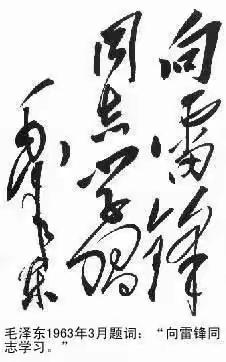 向雷锋
同志学习
毛泽东
毛泽东1963年3月题词：“向雷锋同
志学习。”